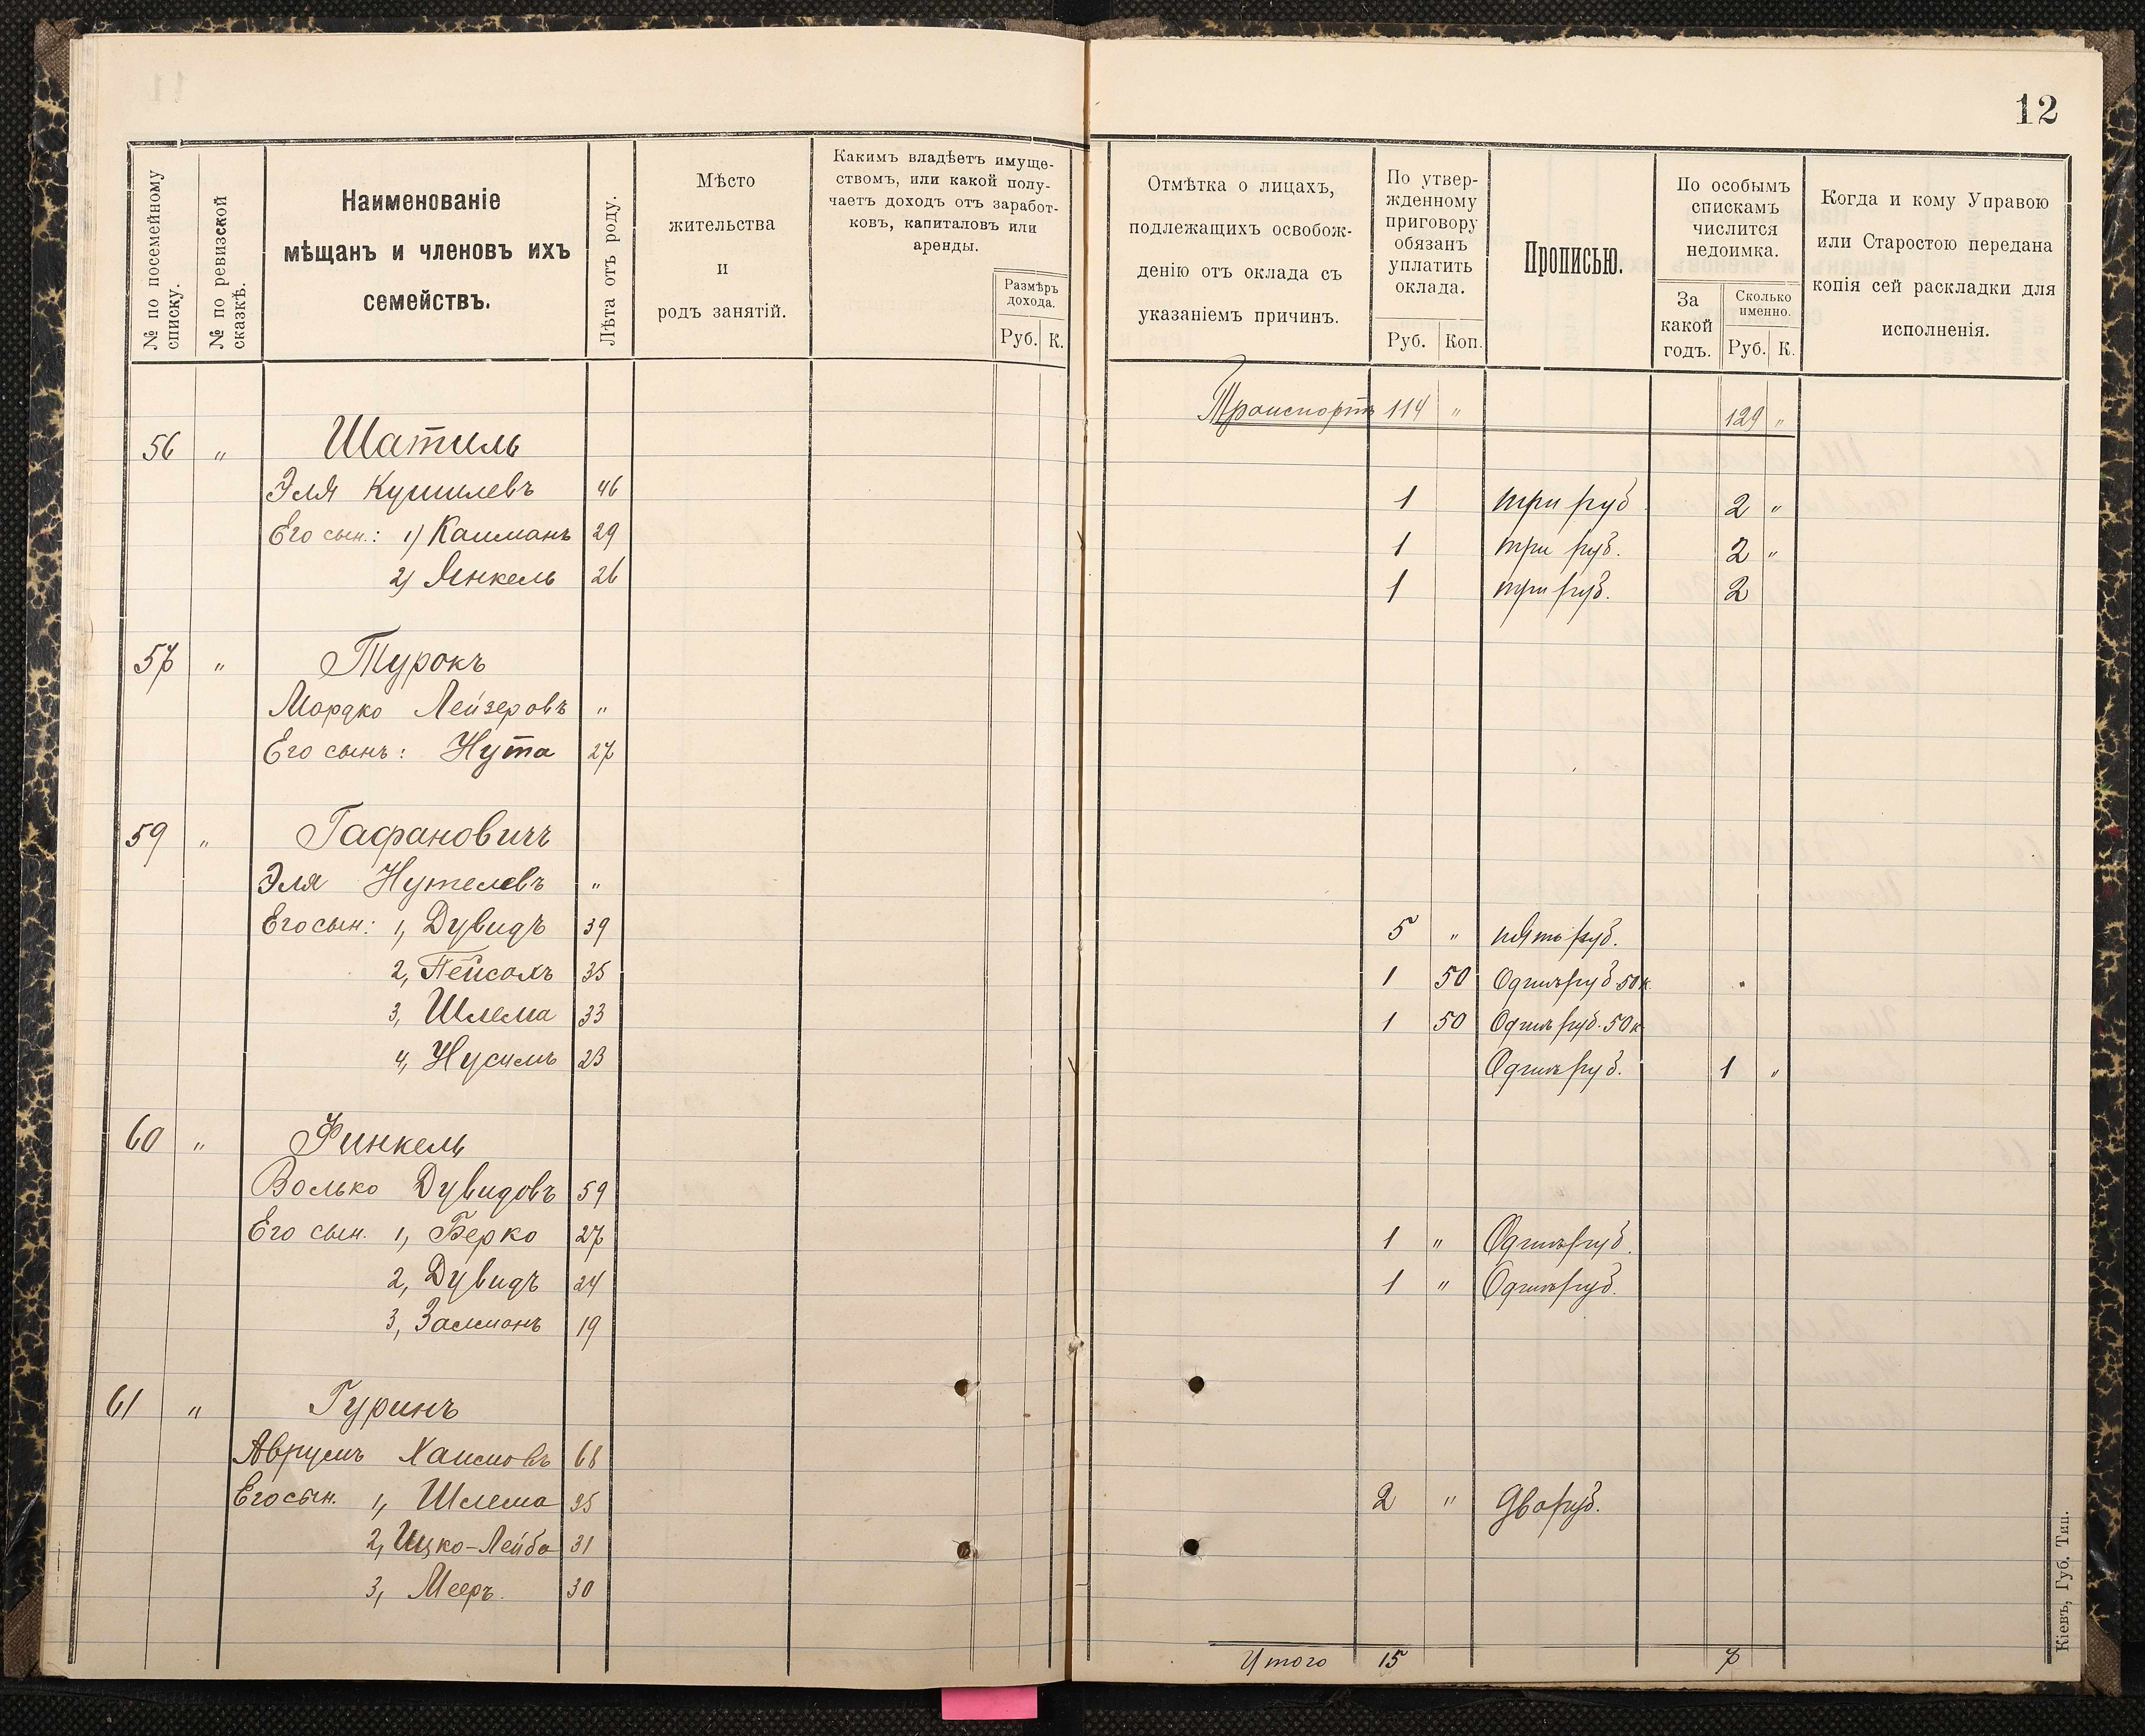 12
№ по посемейному списку.
№ по ревизской сказкѣ.
Наименованіе
мѣщанъ и членовъ ихъ
семействъ.
Лѣта отъ роду.
Мѣсто
жительства
и
родъ занятій.
Какимъ владѣетъ имуще-
ствомъ, или какой полу-
чаетъ доходъ отъ заработ-
ковъ, капиталовъ или
аренды.
Размѣръ
дохода.
Руб. К.
Отмѣтка о лицахъ,
подлежащихъ освобож-
денію отъ оклада съ
указаніемъ причинъ.
По утвер-
жденному
приговору
обязанъ
уплатить
оклада.
Руб. Коп.
Прописью.
По особымъ
спискамъ
числится
недоимка.
За
какой
годъ.
Сколько
именно.
Руб. К.
Когда и кому Управою
или Старостою передана
копія сей раскладки для
исполненія.
Транспортъ 114 " 129 "
56 " Шатиль
Эля Кушилевъ 46 1 три руб 2 "
Его сын.: 1) Калманъ 29 1 три руб. 2 "
2) Янкель 26 1 три руб. 2
57 " Турокъ
Мордко Лейзеровъ "
Его сынъ: Нута 27
59 " Гафановичъ
Эля Нутелевъ "
Его сын: 1, Дувидъ 39 5 " пять руб.
2, Пейсахъ 35 1 50 Одинъ руб 50 к.
3, Шлема 33 1 50 Одинъ руб. 50 к
4, Нусимъ 23 Одинъ руб. 1 "
60 " Финкель
Волько Дувидовъ 59
Его сын. 1, Берко 27 1 " Одинъ руб.
2, Дувидъ 24 1 " Одинъ руб.
3, Залманъ 19
61 " Гуринъ
Аврумъ Хаимовъ 68
Его сын. 1, Шлема 35 2 " Два руб.
2, Ицко-Лейба 31
3, Мееръ. 30
Итого 15 7
Кіевъ, Губ. Тип.